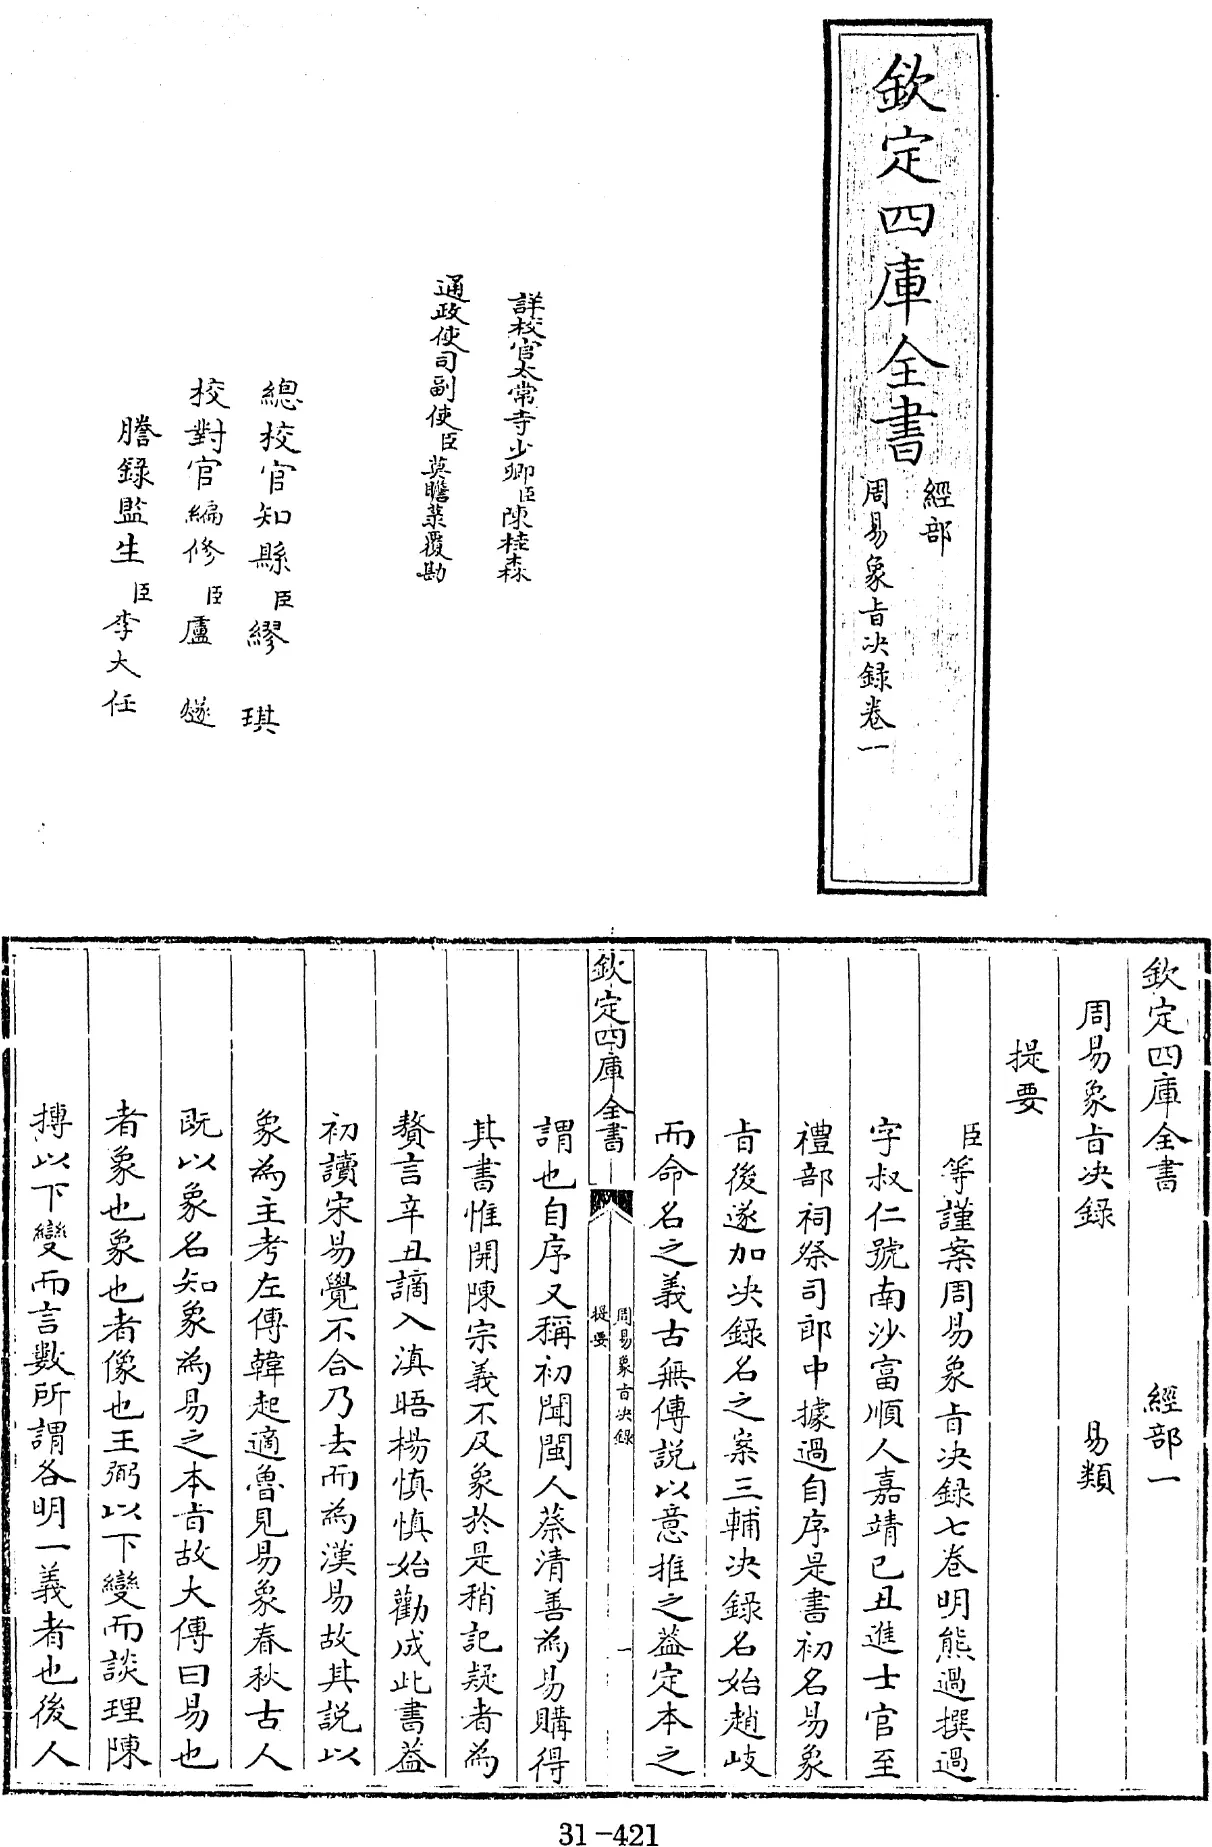 欽定四庫全書
經部
周易象㫖決録卷一
詳校官太常寺少卿臣陳桂森
通政使司副使臣莫瞻菉覆勘
總校官知縣臣繆琪
校對官編修臣盧遂
謄録監生臣李大任
欽定四庫全書 經部一
周易象㫖決録 易類
提要
臣等謹案周易象㫖決録七卷明熊過撰過
字叔仁號南沙富順人嘉靖己丑進士官至
禮部祠祭司郎中據過自序是書初名易象
㫖後遂加決録名之案三輔決録名始趙岐
而命名之義古無傳説以意推之葢定本之
欽定四庫全書
周易象㫖決録
提要
一
謂也自序又稱初聞閩人蔡清善為易購得
其書惟開陳宗義不及象於是稍記疑者為
贅言辛丑謫入滇晤楊慎慎始勸成此書葢
初讀宋易覺不合乃去而為漢易故其説以
象為主考左傳韓起適魯見易象春秋古人
既以象名知象為易之本㫖故大傳曰易也
者象也象也者像也王弼以下變而談理陳
摶以下變而言數所謂各明一義者也後人
31-421